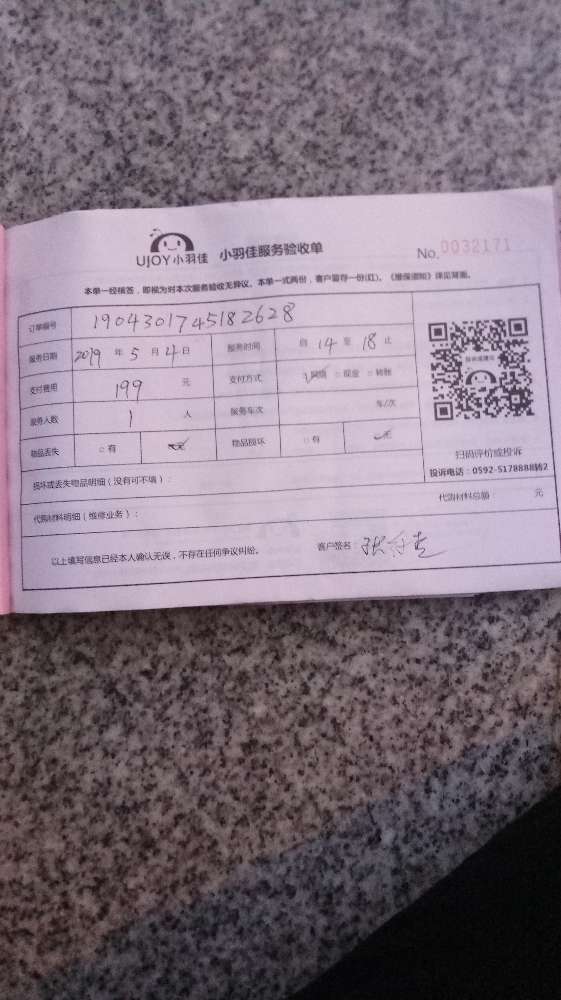 UJOY小羽佳 小羽佳服务验收单 No. 0032171
本单一经核签，即视为对本次服务验收无异议。本单一式两份，客户留存一份(红)。《维保须知》详见背面。
订单编号 1904301745182628
服务日期 2019 年 5 月 4 日 服务时间 自 14 至 18 止
支付费用 199 元 支付方式 网络 □现金 □转账
服务人数 1 人 服务车次 车/次
物品丢失 □有 无 物品损坏 □有 无
扫码评价或投诉
投诉电话：0592-5178888转2
损坏或丢失物品明细（没有可不填）：
代购材料明细（维修业务）： 代购材料总额 元
以上填写信息已经本人确认无误，不存在任何争议纠纷。 客户签名：